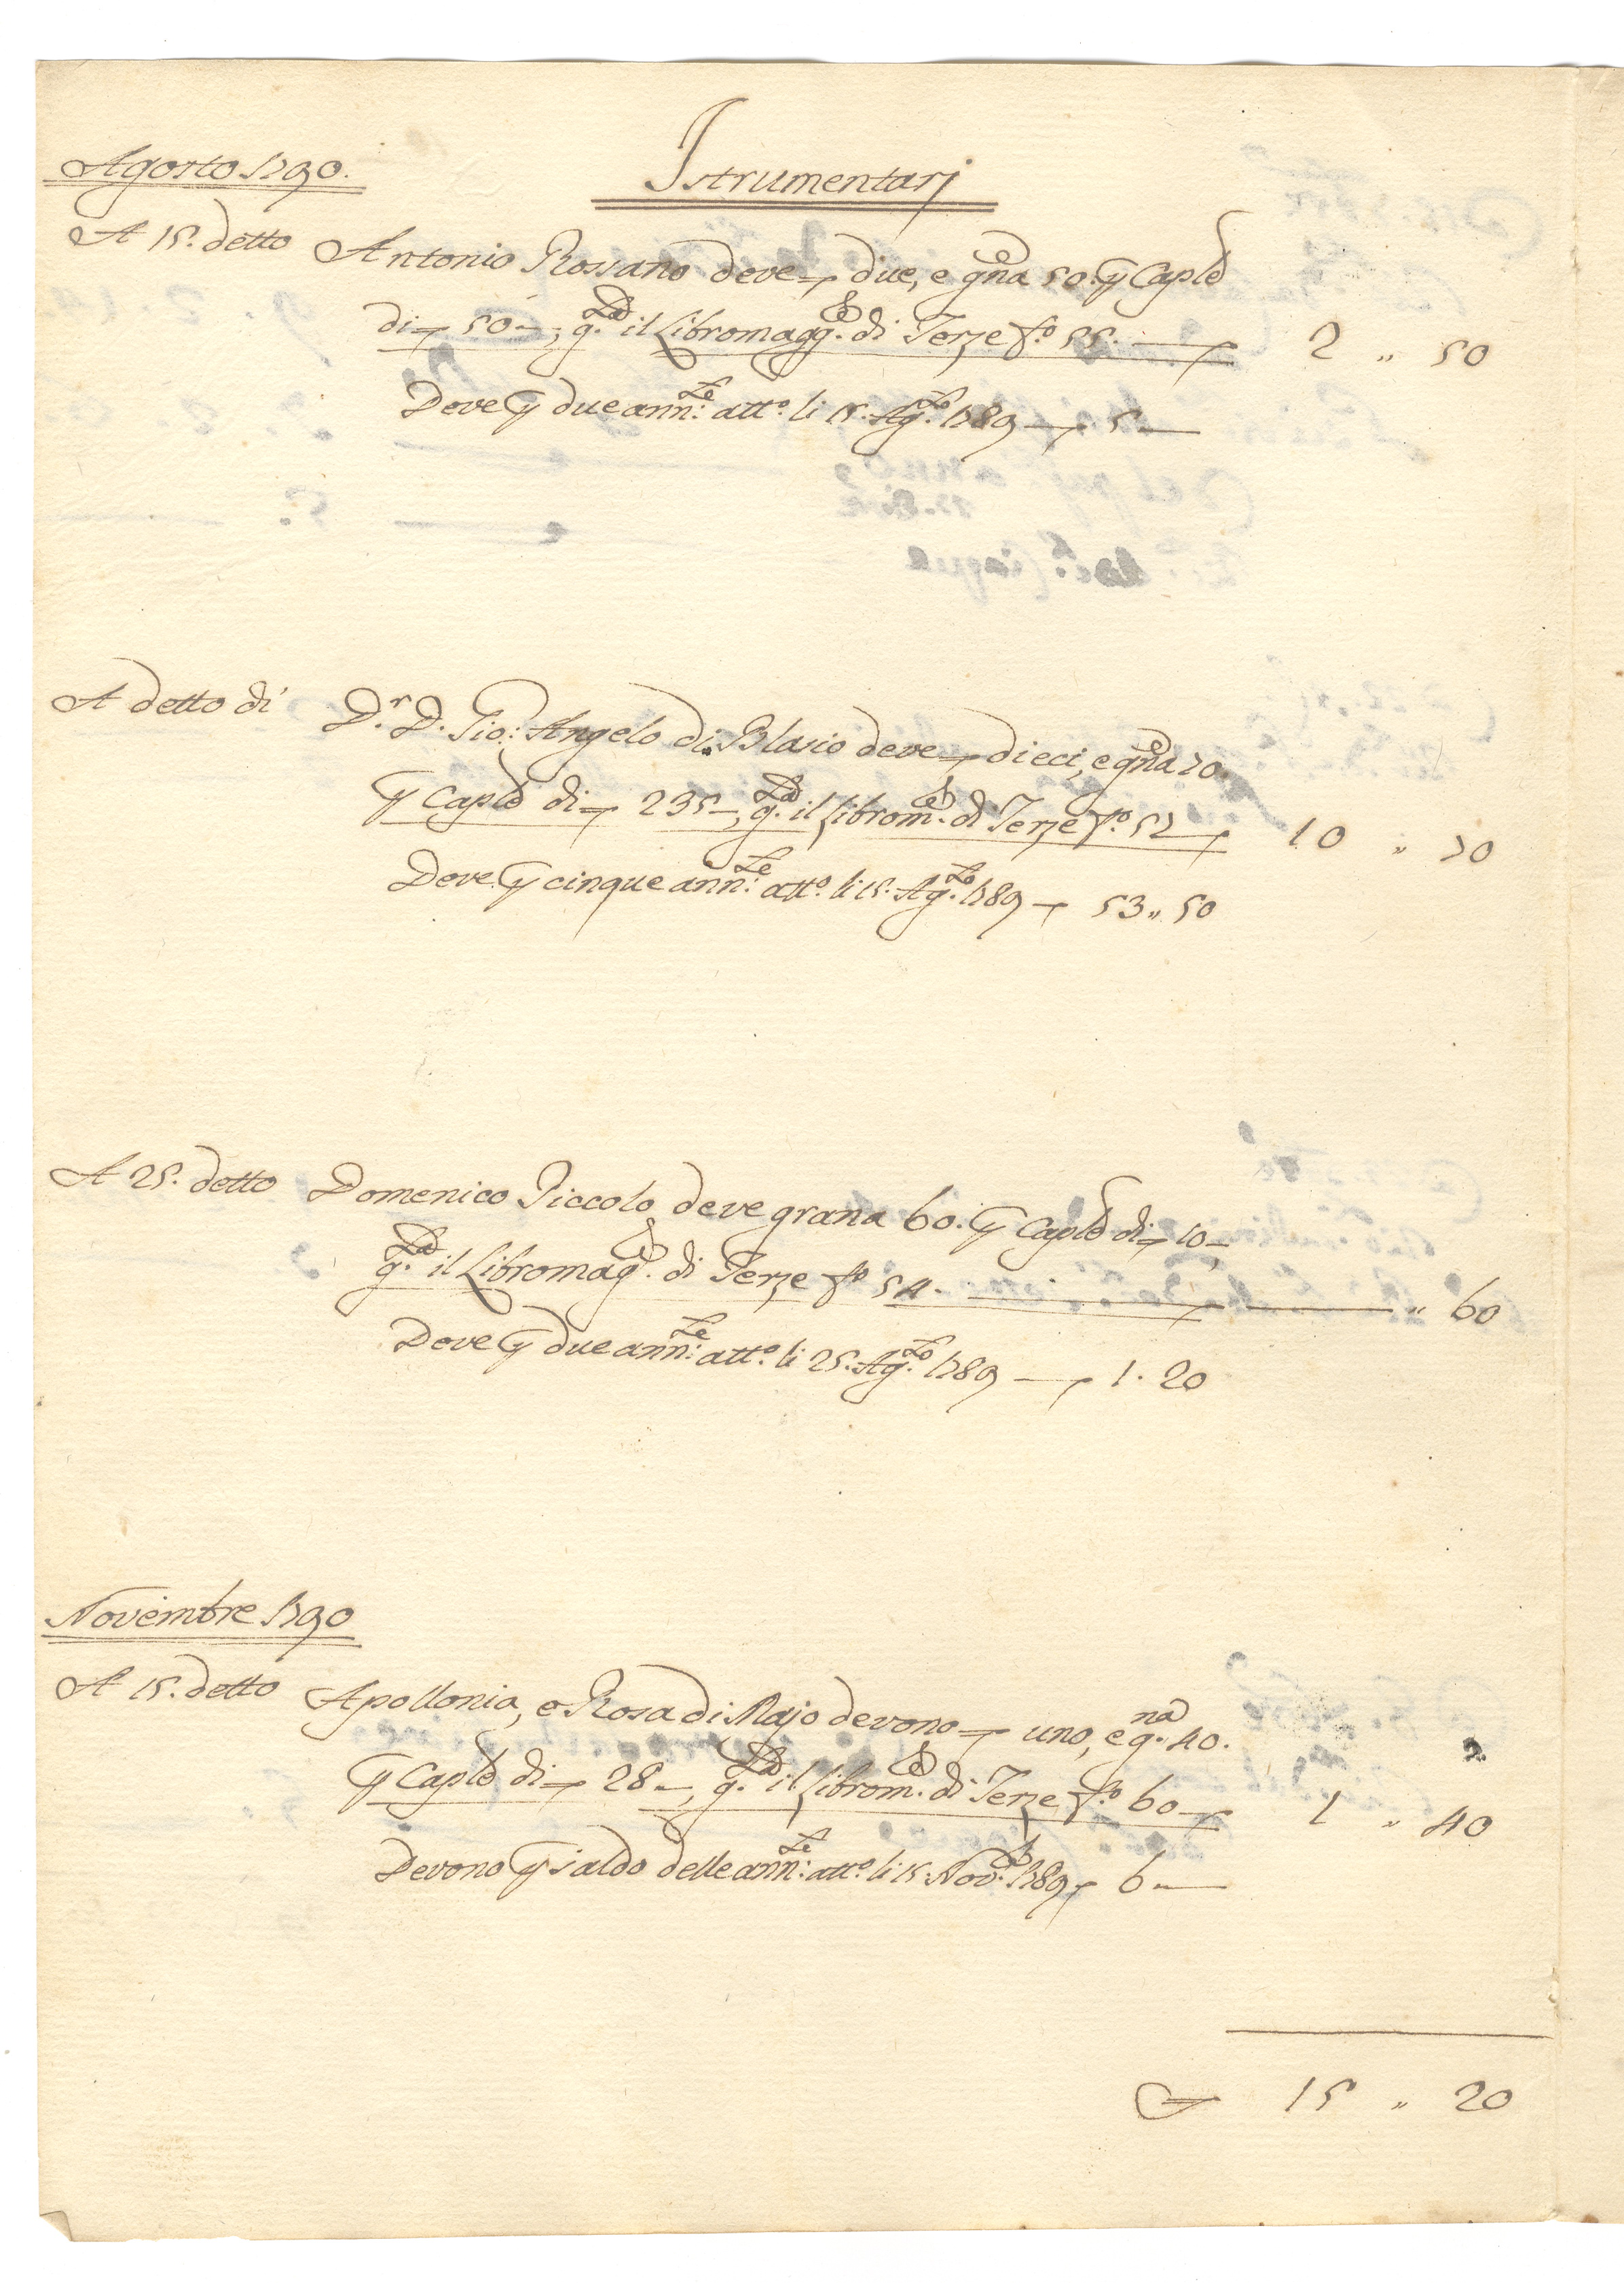 Istrumentarj
Agosto 1790.
A 15. detto Antonio Rossano deve due, e gña 50. p Caplē
di 50 —, g.ta il Libromagg.re di Terze f.o 55. 2 „ 50
Deve p due ann:te att.o li 15. Ag.to 1789 — 5 —
A detto dì D.r D. Gio: Angelo di Blasio deve dieci, e gña 70.
p Caplē di 235 —, g.ta il Librom.re di Terze f.o 52 10 „ 70
Deve p cinque ann:te att.o li 15. Ag.to 1789 — 53 „ 50
A 25. detto Domenico Piccolo deve grana 60. p Caplē di 10 —,
g.ta il Libromag.re di Terze f.o 54. — „ 60
Deve p due ann:te att.o li 25. Ag.to 1789 — 1 . 20
Novembre 1790
A 15. detto Apollonia, e Rosa di Majo devono uno, e g.na 40.
p Caplē di 28 —, g.ta il Librom.re di Terze f.o 60 1 „ 40
Devono p saldo delle ann:te att.o li 15. Nov.bre 1789 6 —
15 „ 20